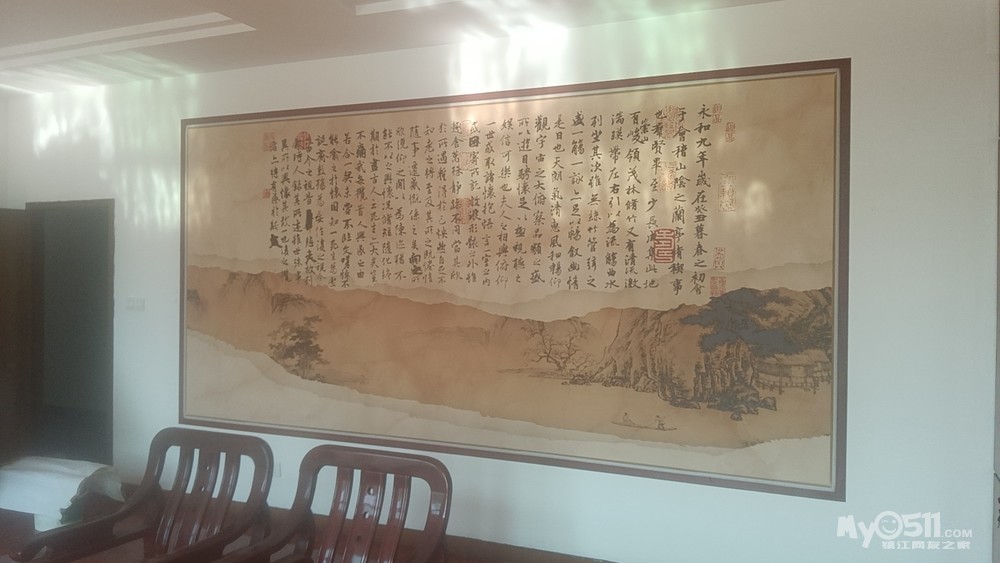 永和九年歲在癸丑暮春之初會
于會稽山陰之蘭亭脩稧事
也羣賢畢至少長咸集此地
有崇山峻領茂林脩竹又有清流激
湍暎帶左右引以為流觴曲水
列坐其次雖無絲竹管弦之
盛一觴一詠亦足以暢叙幽情
是日也天朗氣清惠風和暢仰
觀宇宙之大俯察品類之盛
所以遊目騁懷足以極視聽之
娛信可樂也夫人之相與俯仰
一世或取諸懷抱悟言一室之內
或因寄所託放浪形骸之外雖
趣舍萬殊靜躁不同當其欣
於所遇暫得於己快然自足不
知老之將至及其所之既惓情
隨事遷感慨係之矣向之所
欣俛仰之間以為陳迹猶不
能不以之興懷況脩短隨化終
期於盡古人云死生亦大矣豈
不痛哉每攬昔人興感之由
若合一契未嘗不臨文嗟悼不
能喻之於懷固知一死生為虛
誕齊彭殤為妄作後之視今
My0511.COM
镇江网友之家